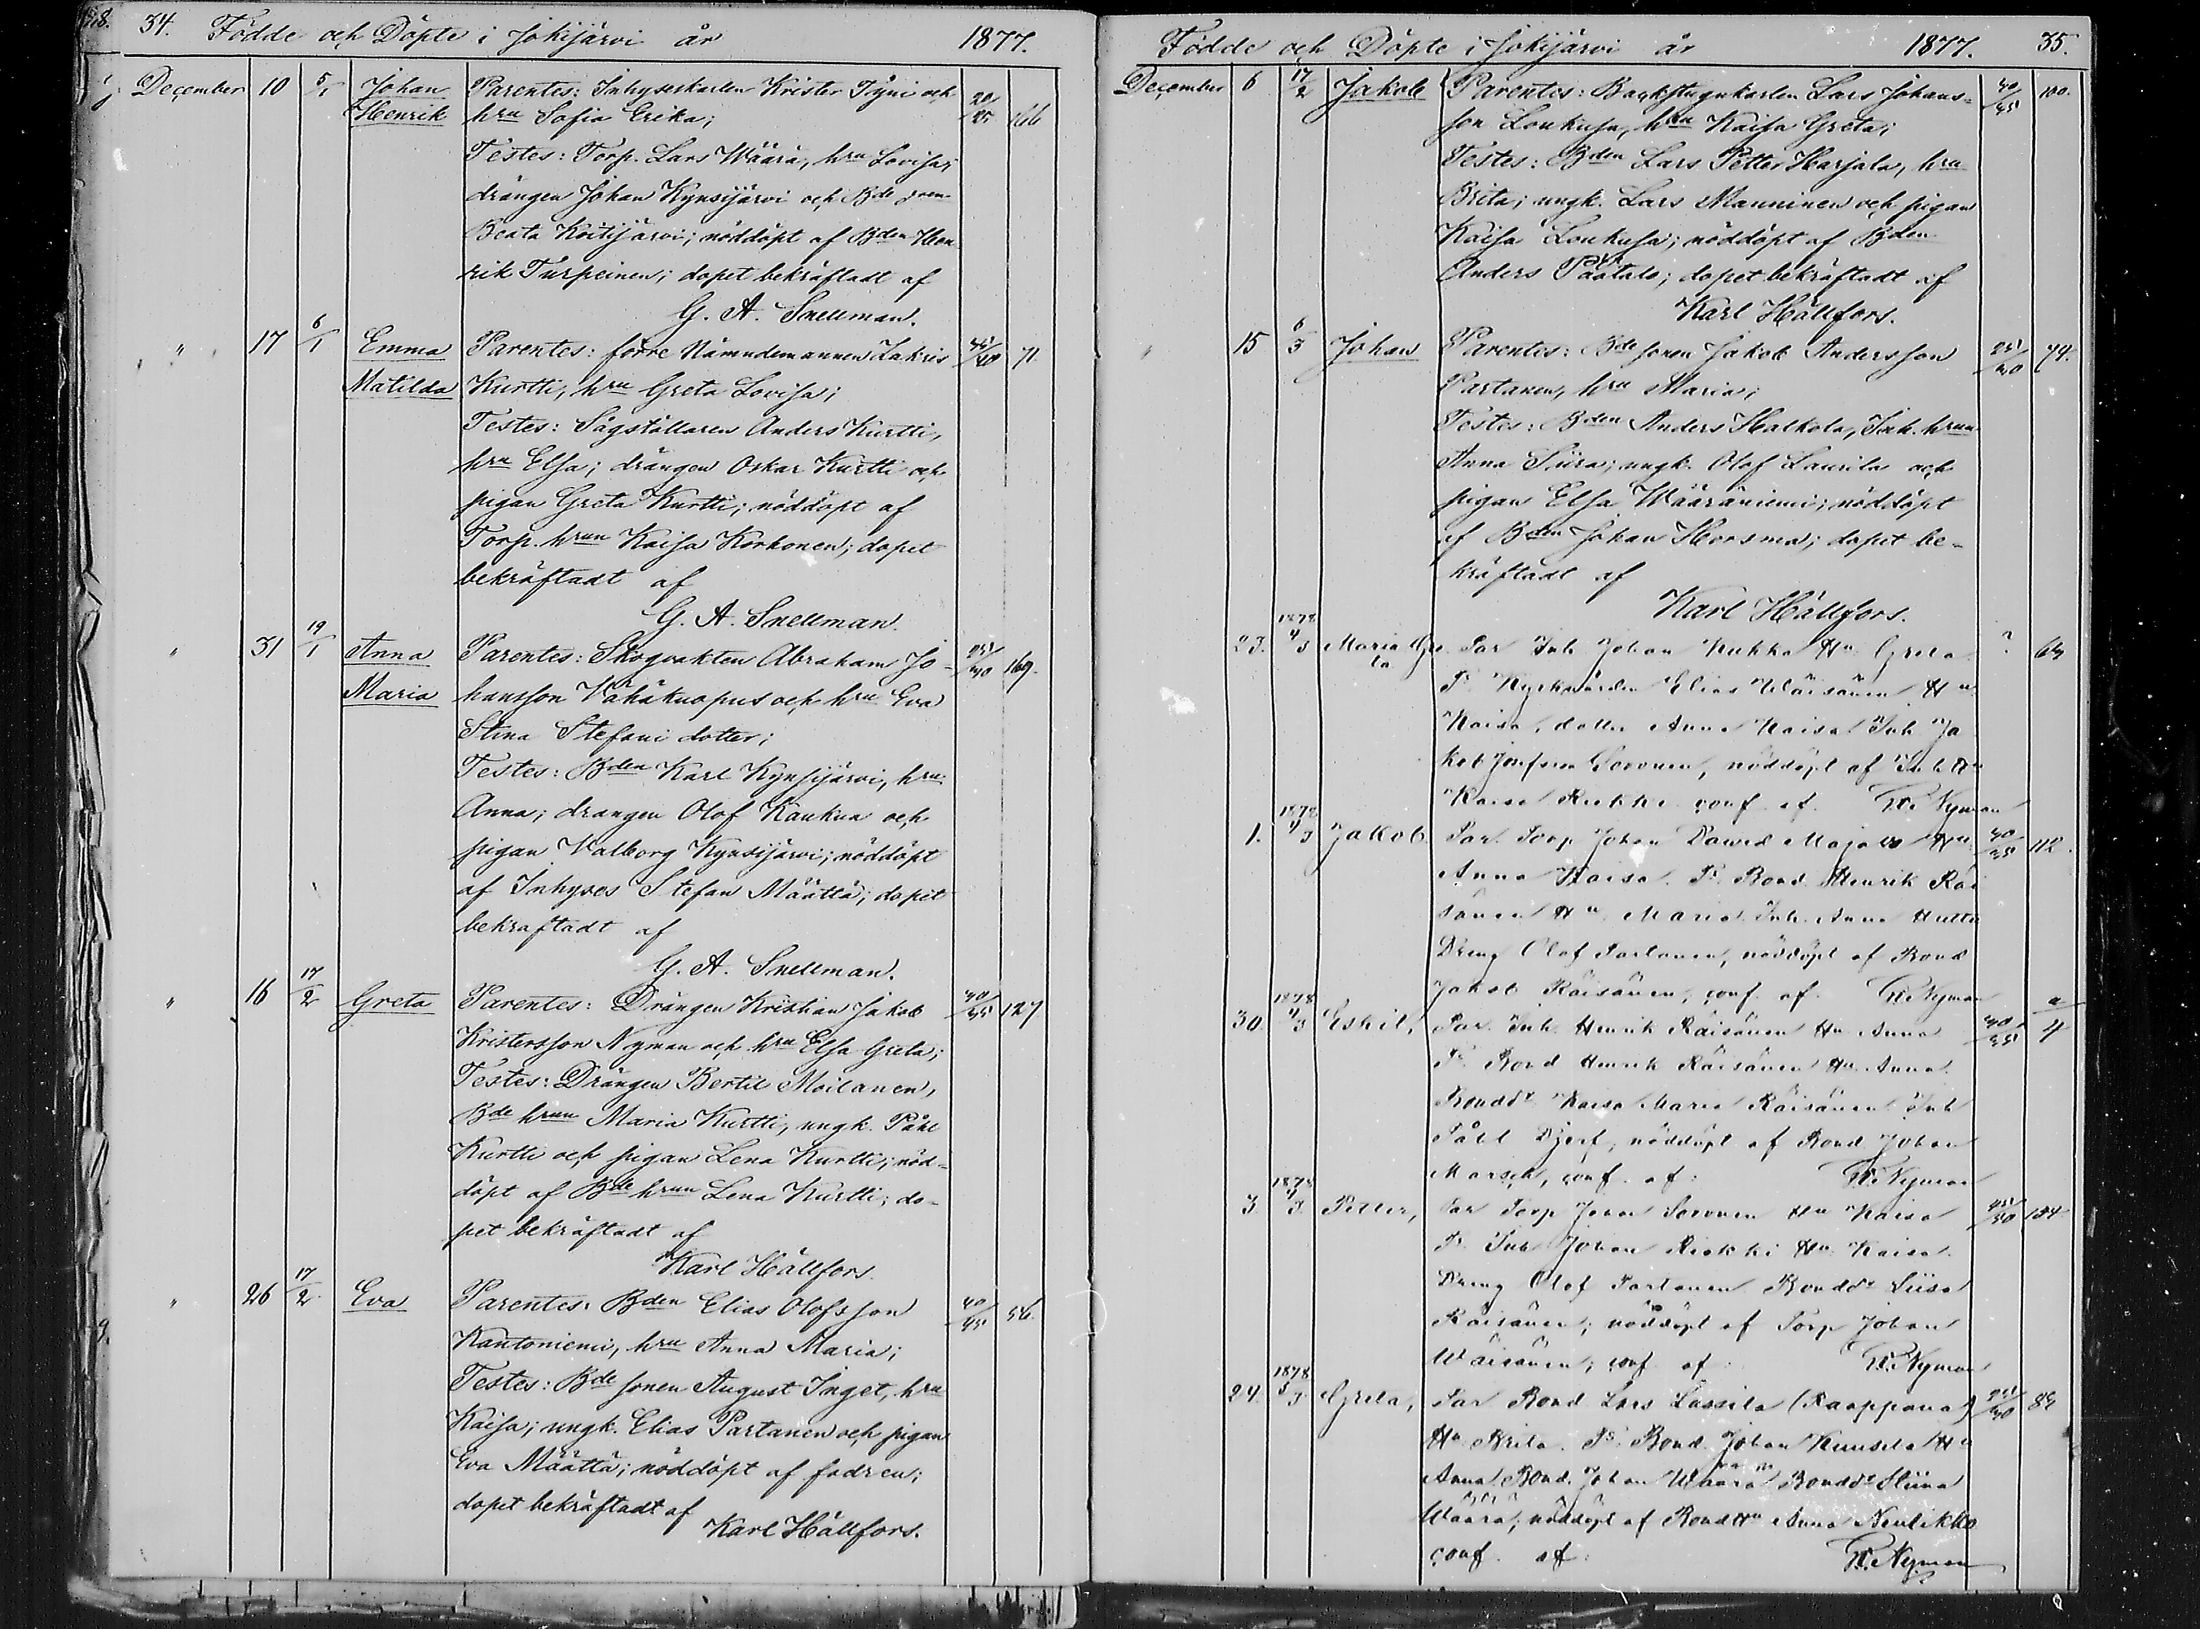 34. Födde och Döpte i Jokijärvi år 1877.
December 10 5/1 Johan Parentes: Inhyseskarlen Krister Tyni och 20/25 166
Henrik hru Sofia Erika;
Testes: Torp. Lars Wäärä, hru Lovisa;
drängen Johan Kynsijärvi och Bde
Beata Koitijärvi; nöddöpt af Bden Hen
rik Turpeinen; dopet bekräftadt af
G. A. Snellman.
" 17 6/1 Emma Parentes: förre Nämndemannen Zakris 71
Matilda Kurtti, hru Greta Lovisa;
Testes: Sågställaren Anders Kurtti,
hru Elsa; drängen Oskar Kurtti och
pigan Greta Kurtti; nöddöpt af
Torp. hrun Kaisa Korkonen; dopet
bekräftadt af
G. A. Snellman.
" 31 19/1 Anna Parentes: Skogvakten Abraham Jo- 169.
Maria hansson Vähäkuopus och hru Eva
Stina Stefani dotter;
Testes: Bden Karl Kynsijärvi, hru
Anna; drangen Olof Kaukua och
pigan Valborg Kynsijärvi; nöddöpt
af Inhyses Stefan Määttä; dopet
bekraftadt af
G. A. Snellman.
" 16 17/2 Greta Parentes: Drängen Kristian Jakob 127
Kristersson Nyman och hru Elsa Greta;
Testes: Drängen Bertil Moilanen,
Bde hrun Maria Kurtti, ungk. Påhl
Kurtti och pigan Lena Kurtti; nöd-
döpt af Bde hrun Lena Kurtti; do-
pet bekräftadt af
Karl Hällfors.
" 26 17/2 Eva Parentes: Bden Elias Olofsson 40/45 56.
Kantoniemi, hru Anna Maria;
Testes: Bde sonen August Inget, hru
Kaisa; ungk. Elias Partanen och pigan
Eva Määttä; nöddöpt af fadren;
dopet bekräftadt af
Karl Hällfors.
Födde och Döpte i Jokijärvi år 1877. 35.
December 6 17/2 Jakob Parentes: Backstugukarlen Lars Johans- 40/45 100.
son Loukusa, hru Kaisa Greta;
Testes: Bden Lars Petter Harjala, hru
Brita; ungk. Lars Manninen och pigan
Kaisa Loukusa; nöddöpt af Bden
Anders Päätalo; dopet bekräftadt af
Karl Hällfors.
" 15 6/3 Johan Parentes: Bde sonen Jakob Andersson 74.
Partanen, hru Maria;
Testes: Bden Anders Halkola, Inh. hrun
Anna Siira; ungk. Olof Laurila och
pigan Elsa Wääräniemi; nöddöpt
af Bden Johan Horsma; dopet be-
kräftadt af
Karl Hällfors.
1878
23. 4/3 Maria Gre Par Inh Johan Kukka Hu Greta ? 64
ta Ts Kyrkvärden Elias Wäisänen Hu
Kaisa, dotter Anna Kaisa Inh Ja
kob Josefson Soronen, nöddöpt af Inh Hu
Kaisa Riekki conf. af. Nyman
1878
1. 4/3 Jakob Par. Torp Johan David Majava Hu 112.
Anna Kaisa. Ts. Bond Henrik Räi
sänen Hu Maria Inh. Anna Huttu
Dreng Olof Partanen, nöddöpt af Bond
Jakob Räisänen, conf. af. Nyman
1878
30. 4/3 Eskil, Par. Inh. Henrik Räisänen Hu Anna 4
Ts Bond Henrik Räisänen Hu Anna.
Bonddr Kaisa Maria Räisänen Inh
Påhl Djerf, nöddöpt af Bond Johan
Marsch, conf. af: Nyman
1878
3. 4/3 Petter, Par Torp Johan Soronen Hu Kaisa 134
Ts. Inh Johan Riekki Hu Kaisa.
Dreng Olof Partanen Bonddr Liisa
Räisänen; nöddöpt af Torp Johan
Wäisänen; conf af: Nyman
1878
24. 5/3 Greta, Par Bond Lars Lassila (Raappana)
Hu Brita. Ts. Bond. Johan Kuusela Hu
Anna, Bond. Johan Wäärä Bonddr Stiina
Wäärä; nöddöpt af Bond Hu Anna Neulikko
conf. af: Nyman